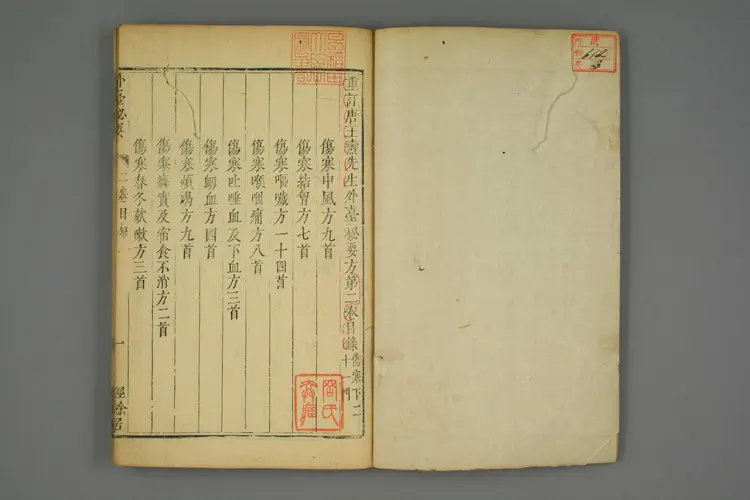 重訂唐王燾先生外臺祕要方第二卷目錄 傷寒下二十一門
傷寒中風方九首
傷寒結胷方七首
傷寒嘔噦方一十四首
傷寒喉咽痛方八首
傷寒吐唾血及下血方三首
傷寒衂血方四首
傷寒煩渴方九首
傷寒癖實及宿食不消方二首
傷寒春冬欬嗽方三首
外臺祕要
二卷目錄
一
經餘居